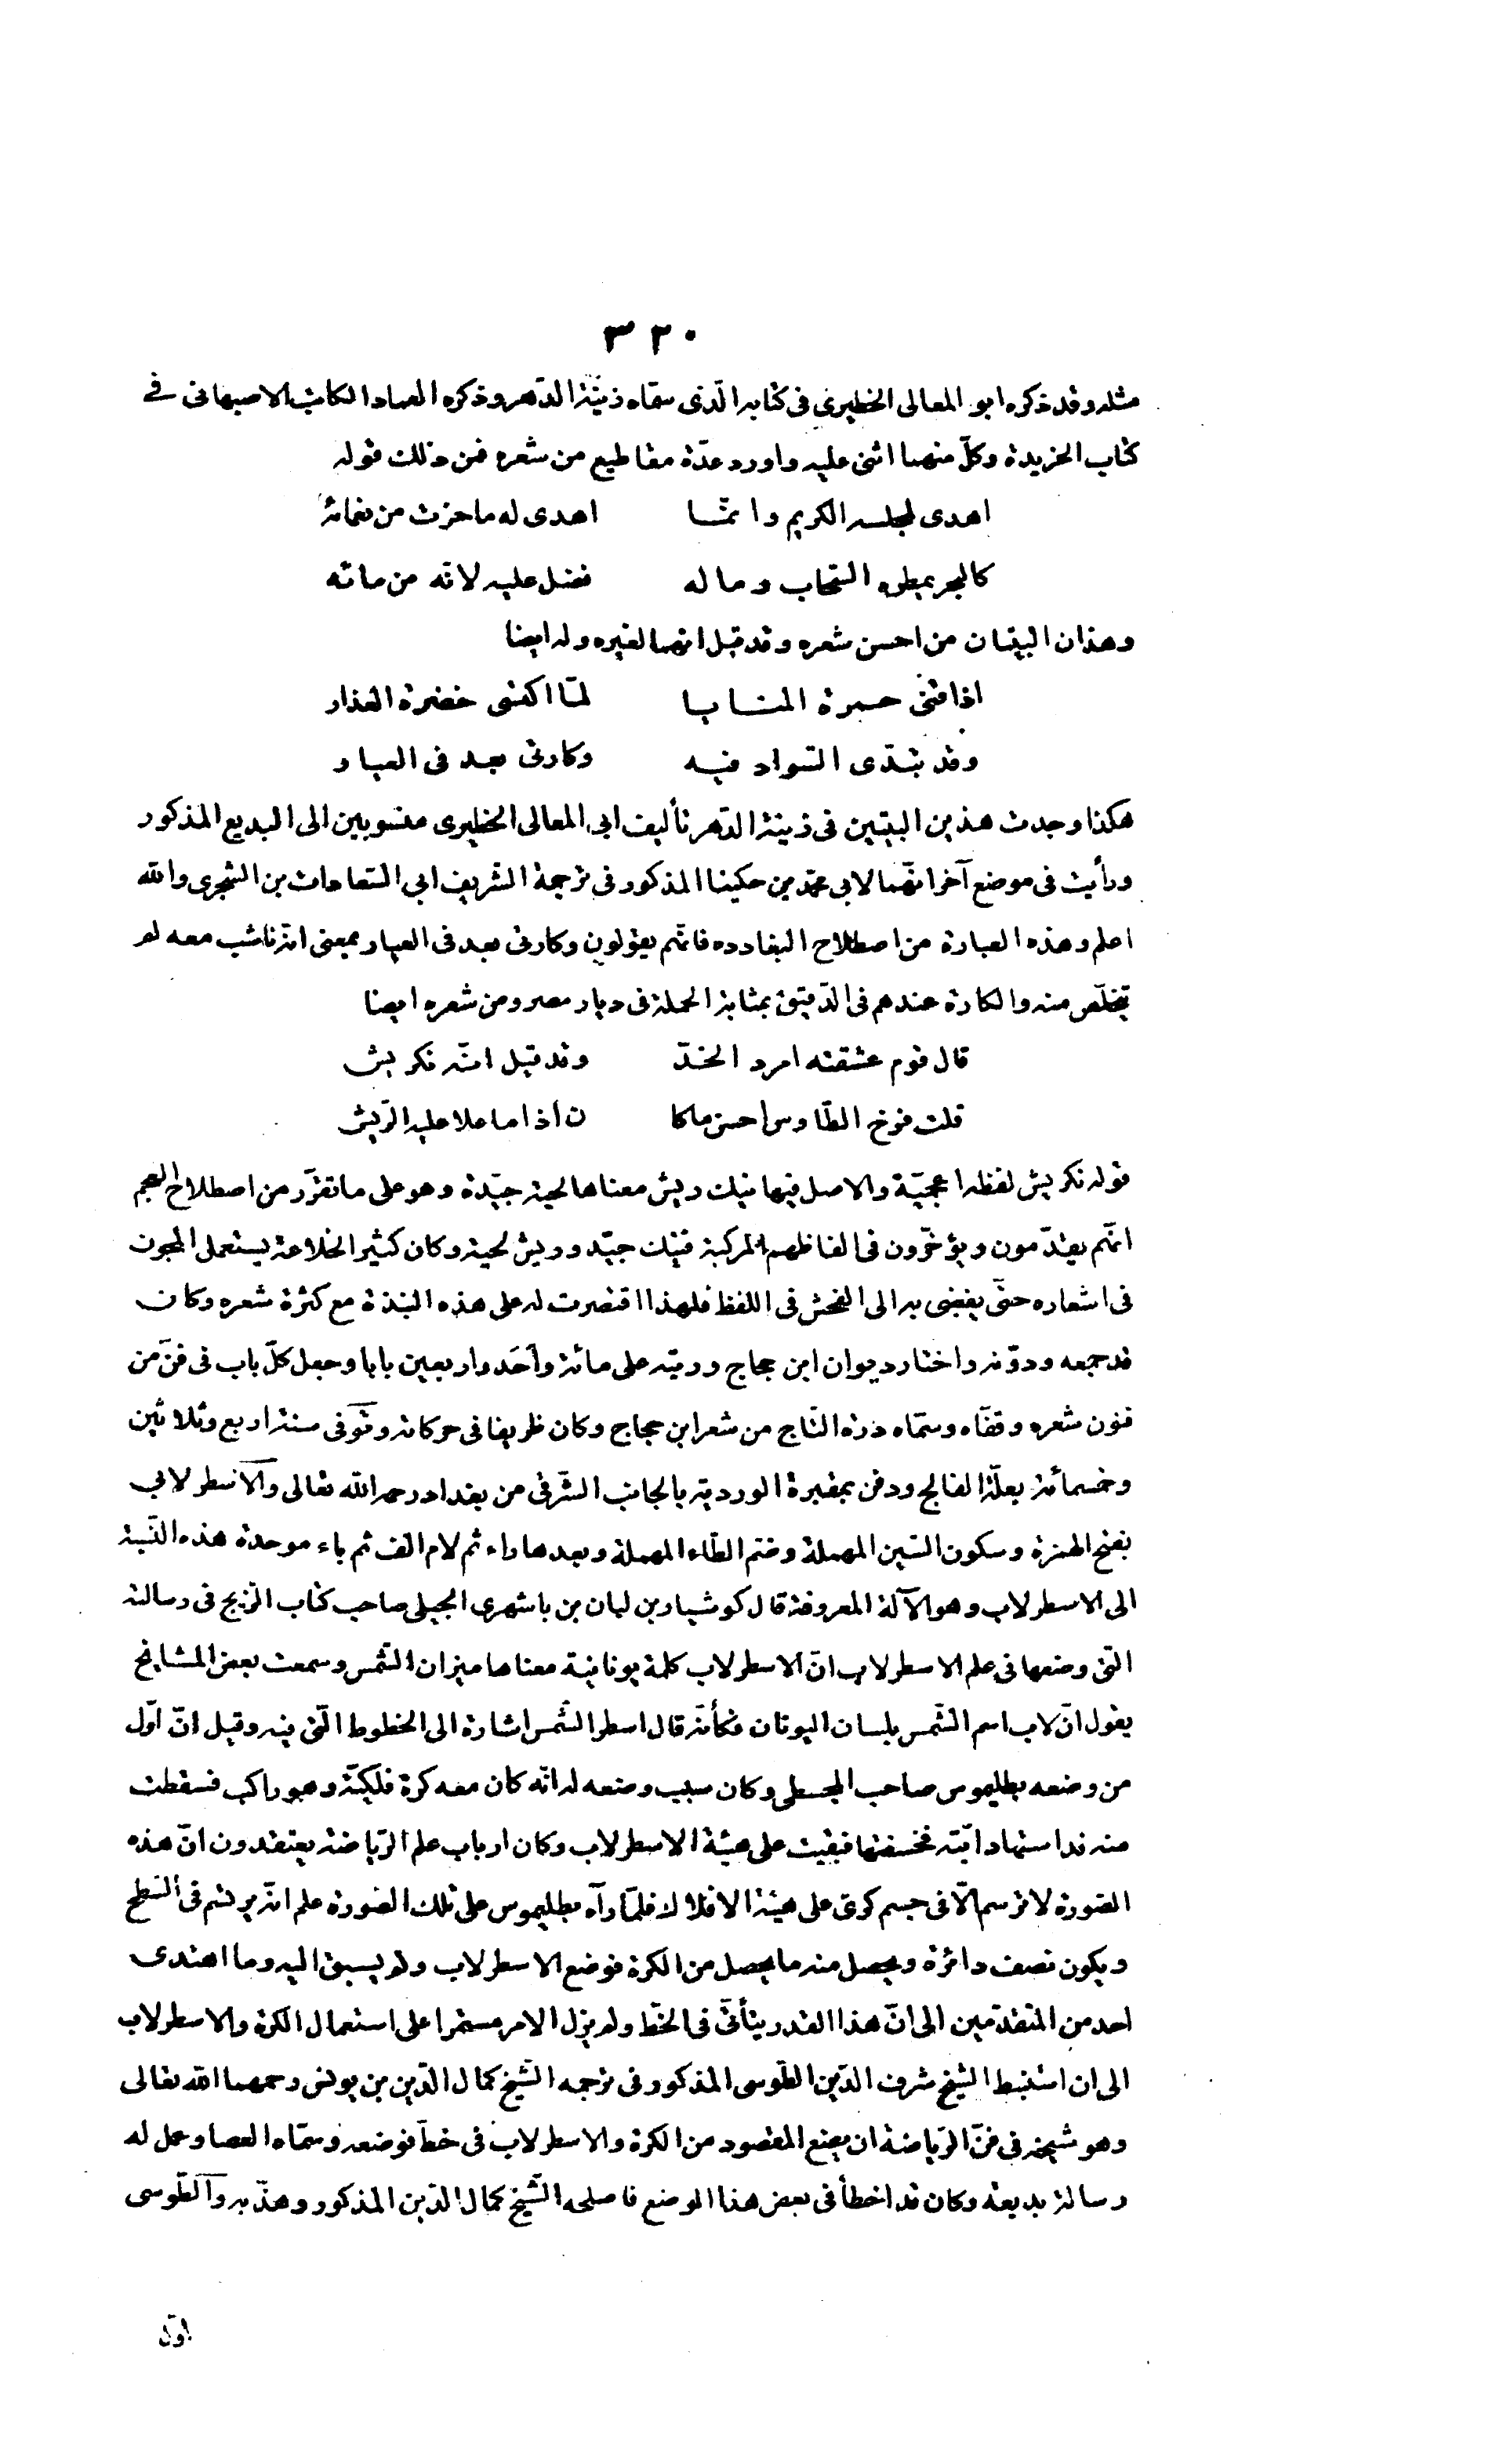 ٣٢٠
مثله وقد ذكره ابو المعالى الخطيرى فى كتابه الّذى سمّاه زينة الدّهر وذكره العماد الكاتب الاصبهانى فى
كتاب الخريدة وكلّ منهما اثنى عليه واورد عدّة مقاطيع من شعره فمن ذلك قوله
اهدى لمجلسه الكريم وانّمـا اهدى له ما حزت من نعمائه
كالبحر يمطره السّحاب وما له فضل عليه لانّه من مائه
وهذان البيتان من احسن شعره وقد قيل انهما لغيره وله ايضا
اذاقنى حمرة المنـايـا لمّا اكتسى خضرة العذار
وقد تبدّى السّواد فيـه وكارتى بعد فى العيـار
هكذا وجدت هذين البيتين فى زينة الدّهر تأليف ابى المعالى الخطيرى منسوبين الى البديع المذكور
ورأيت فى موضع آخر انّهما لابى محمّد بن حكينا المذكور فى ترجمة الشّريف ابى السّعادات بن الشّجرى والله
اعلم وهذه العبارة من اصطلاح البغادده فانّهم يقولون وكارتى بعد فى العيار بمعنى انّه ناشب معه لم
يتخلّص منه والكارة عندهم فى الدّقيق بمثابة الحملة فى ديار مصر ومن شعره ايضا
قال قوم عشقته امرد الخـدّ وقد قيل انّه نكريش
قلت فرخ الطّاوس احسن ما كا ن أذا ما علا عليه الرّيش
قوله نكريش لفظه اعجميّة والاصل فيها نيك ريش معناها لحية جيّدة وهو على ما تقرّر من اصطلاح العجم
انّهم يقدّمون ويؤخّرون فى الفاظهم المركبة فنيك جيّد وريش لحية وكان كثير الخلاعة يستعمل المجون
فى اشعاره حتّى يفضى به الى الفحش فى اللفظ فلهذا اقتصرت له على هذه النبذة مع كثرة شعره وكان
قد جمعه ودوّنه واختار ديوان ابن حجاج ورتبه على مائة وأحد واربعين بابا وجعل كلّ باب فى فنّ من
فنون شعره وقفّاه وسمّاه درة التّاج من شعر ابن حجاج وكان ظريفا فى حركاته وتوّفى سنة اربع وثلاثين
وخمسمائة بعلّة الفالج ودفن بمقبرة الوردية بالجانب الشّرقى من بغداد رحمه الله تعالى والاسطرلابى
بفتح الهمزة وسكون السّين المهملة وضمّ الطّاء المهملة وبعدها راء ثم لام الف ثم باء موحدة هذه النّسبة
الى الاسطرلاب وهو الآلة المعروفة قال كوشيار بن لبان بن باشهرى الجيلى صاحب كتاب الزيج فى رسالته
التى وضعها فى علم الاسطرلاب انّ الاسطرلاب كلمة يونانية معناها ميزان الشّمس وسمعت بعض المشايخ
يقول انّ لاب اسم الشّمس بلسان اليونان فكأنّه قال اسطر الشّمس اشارة الى الخطوط الّتى فيه وقيل انّ اوّل
من وضعه بطليموس صاحب المجسطى وكان سبب وضعه له انّه كان معه كرة فلكيّة وهو راكب فسقطت
منه فداستها دابّته فخسفتها فبقيت على هيئة الاسطرلاب وكان ارباب علم الرّياضة يعتقدون انّ هذه
الصّورة لا ترسم الّا فى جسم كرىّ على هيئة الافلاك فلمّا رآه بطليموس على تلك الصّورة علم انّه يرتسم فى السّطح
ويكون نصف دائرة ويحصل منه ما يحصل من الكرة فوضع الاسطرلاب ولم يسبق اليه وما اهتدى
احد من المتقدّمين الى انّ هذا القدر يتأتّى فى الخّط ولم يزل الامر مستمرا على استعمال الكرة والاسطرلاب
الى ان استنبط الشّيخ شرف الدّين الطّوسى المذكور فى ترجمه الشّيخ كمال الدّين بن يونس رحمهما الله تعالى
وهو شيخه فى فنّ الرّياضة ان يضع المقصود من الكرة والاسطرلاب فى خطّ فوضعه وسمّاه العصا وعمل له
رسالة بديعة وكان قد اخطأ فى بعض هذا الوضع فاصلحه الشّيخ كمال الدّين المذكور وهذّبه والطّوسى
اوّل